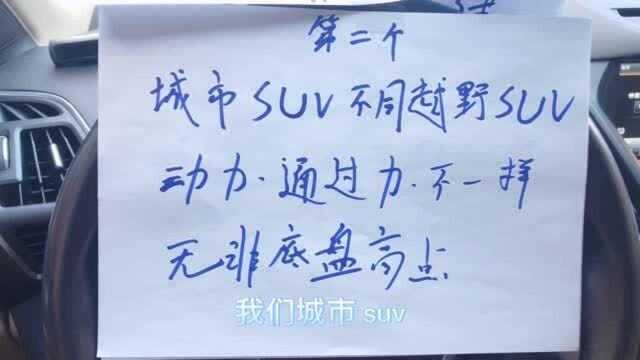 第二个
城市SUV不同越野SUV
动力.通过力.不一样
无非底盘高点
我们城市 suv